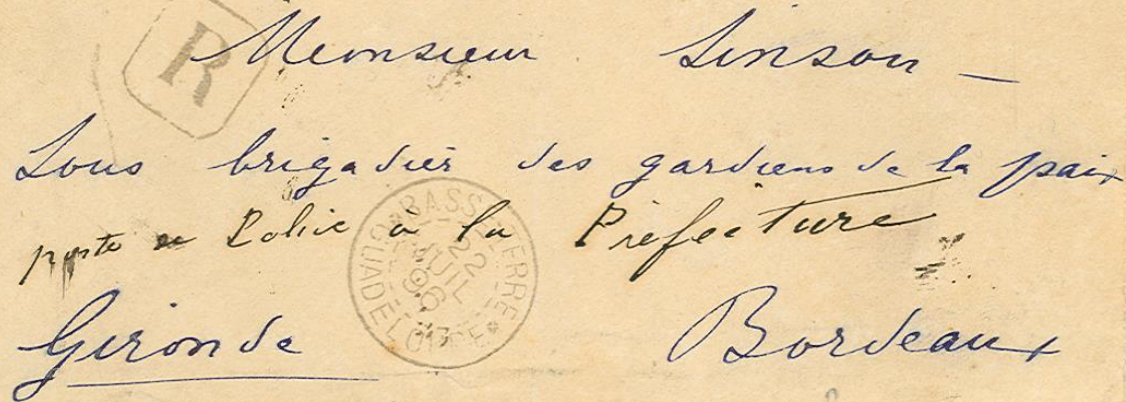 R
Monsieur Sinsou —
Sous brigadier des gardiens de la paix
poste de Police à la Préfecture
BASSE-TERRE
22
JUIL
96
GUADELOUPE
Gironde Bordeaux